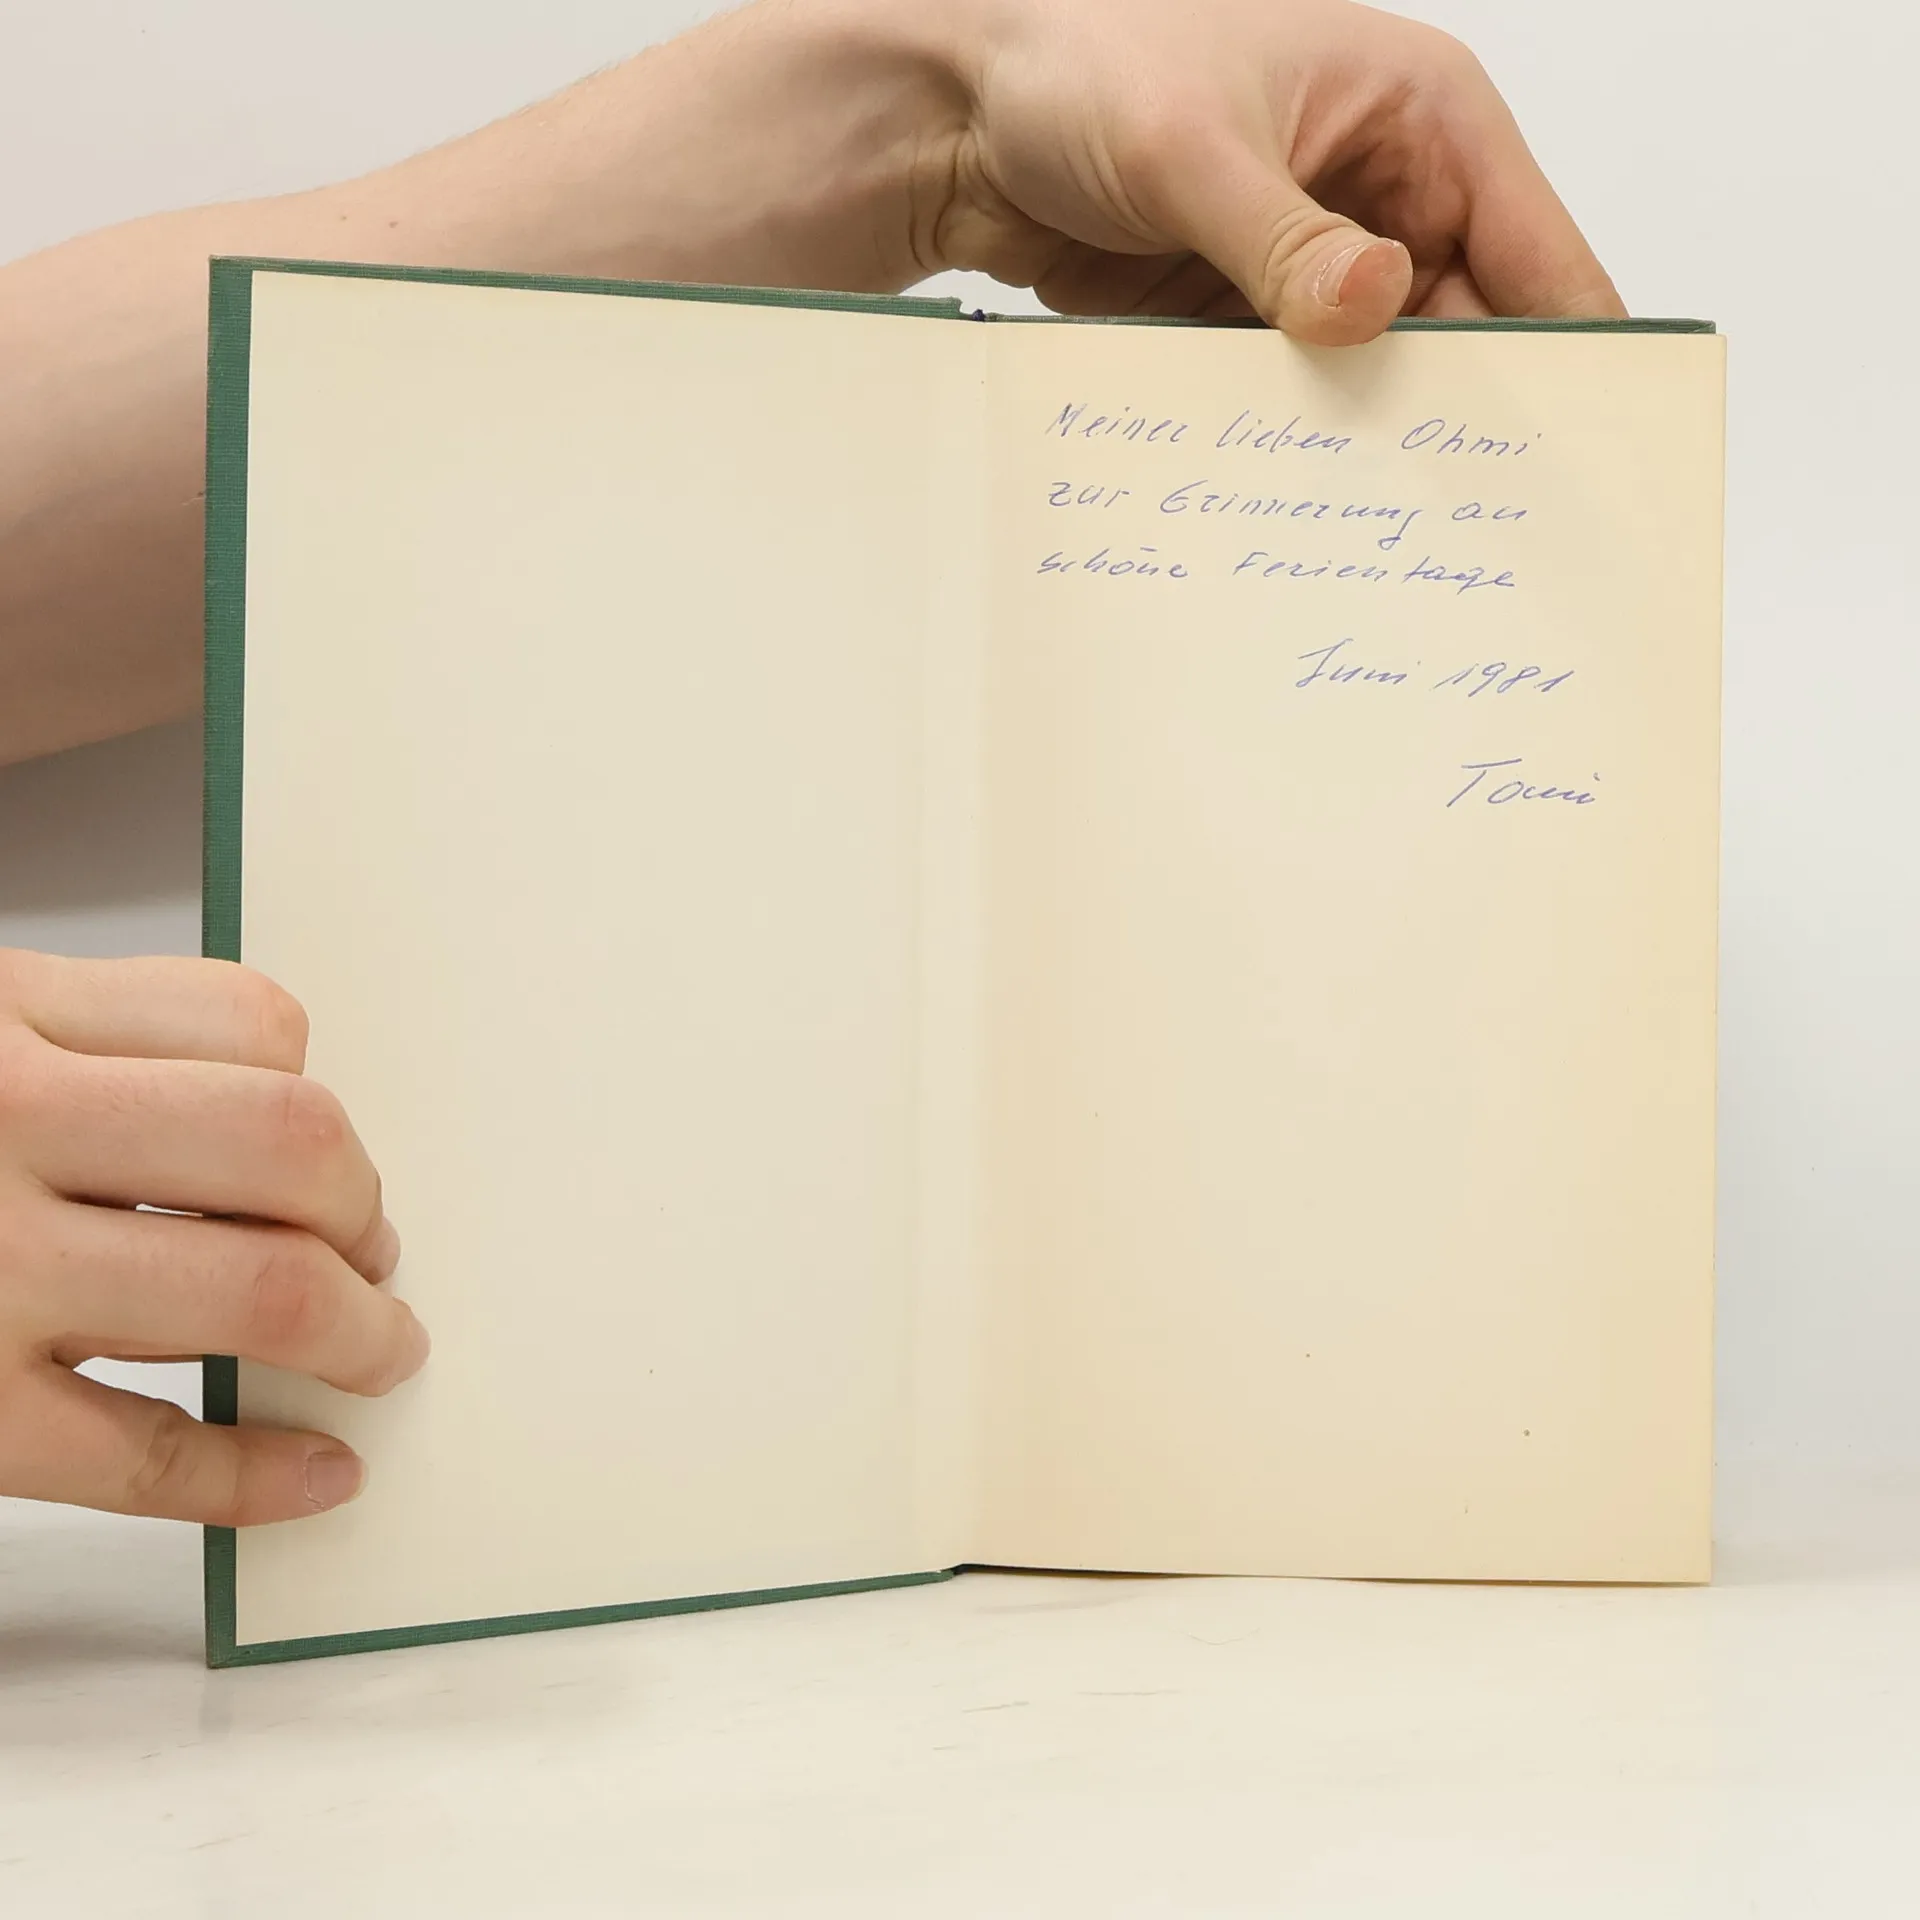 Meiner lieben Ohmi
zur Erinnerung an
schöne Ferientage
Juni 1981
Tomi